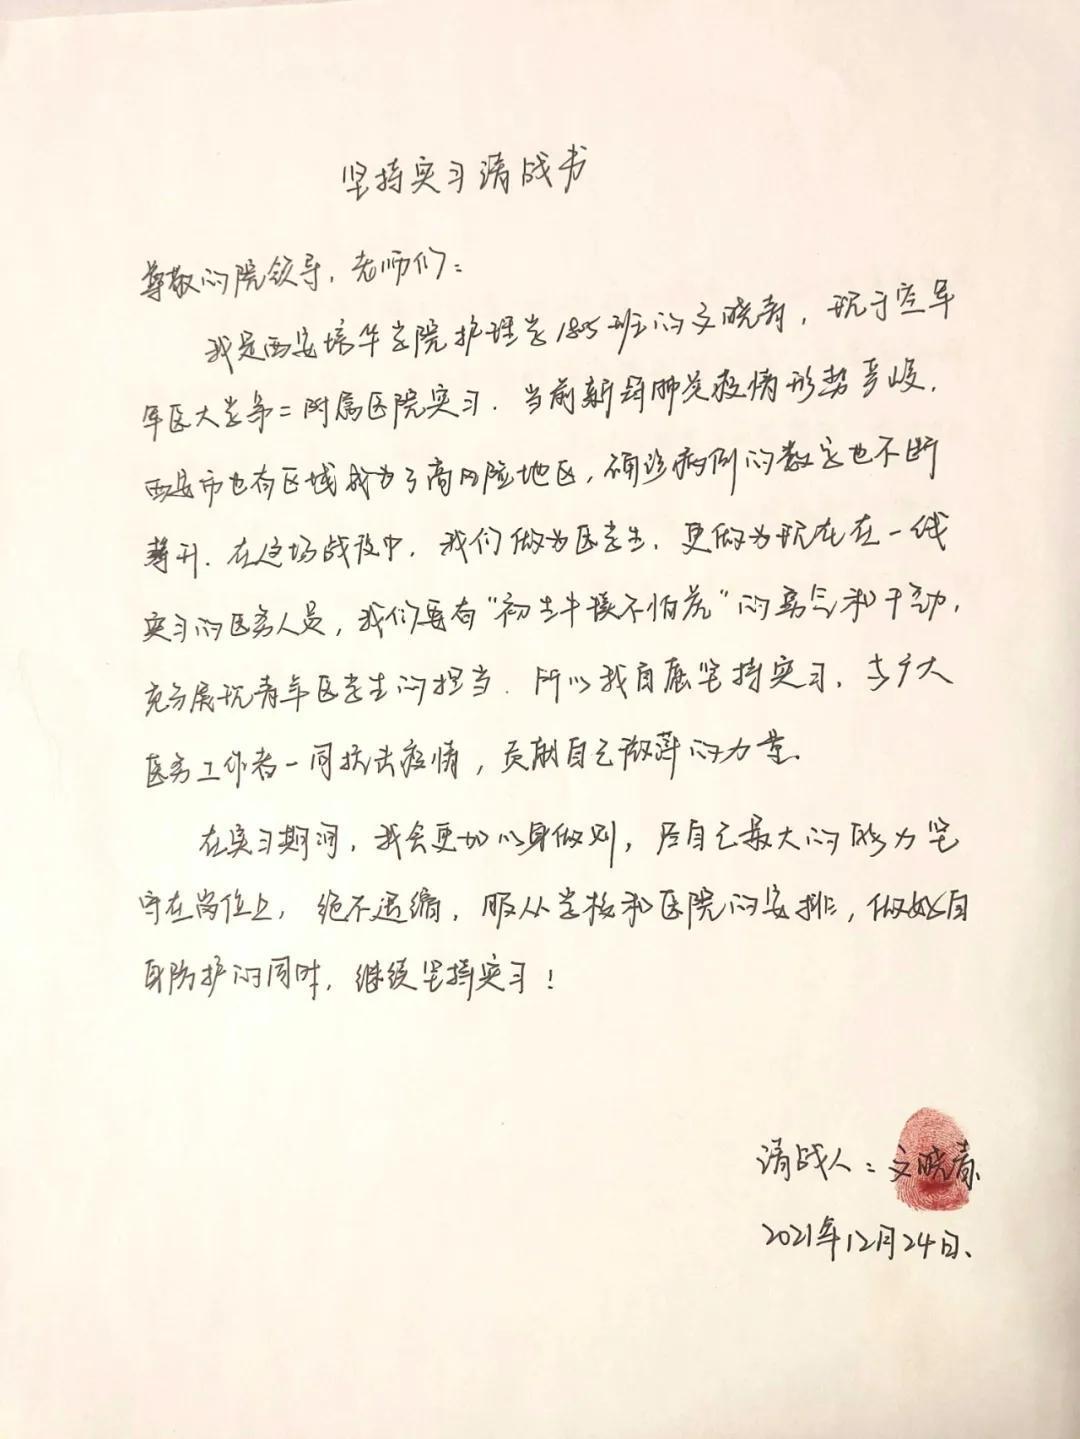 坚持实习请战书
尊敬的院领导，老师们：
我是西安培华学院护理学1805班的文晓青，现于空军
军医大学第二附属医院实习．当前新冠肺炎疫情形势严峻，
西安市也有区域成为了高风险地区，确诊病例的数字也不断
攀升．在这场战役中，我们做为医学生，更做为现在在一线
实习的医务人员，我们要有“初生牛犊不怕虎”的勇气和干劲，
充分展现青年医学生的担当．所以我自愿坚持实习，与广大
医务工作者一同抗击疫情，贡献自己微薄的力量．
在实习期间，我会更加以身做则，尽自己最大的能力坚
守在岗位上，绝不退缩，服从学校和医院的安排，做好自
身防护的同时，继续坚持实习！
请战人：文晓青
2021年12月24日、